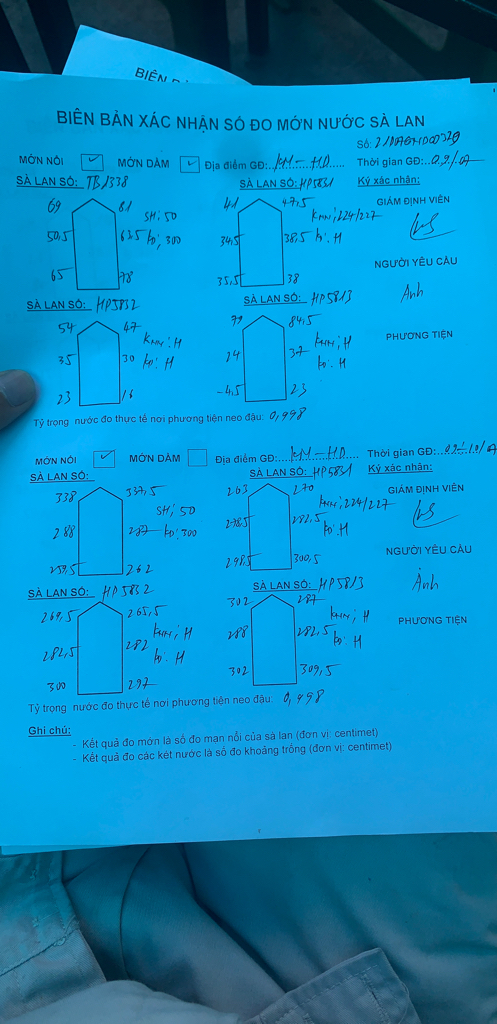 BIÊN BẢN XÁC NHẬN SỐ ĐO MỚN NƯỚC SÀ LAN
Số:
MỚN NỔI ✓ MỚN DẦM ✓ Địa điểm GĐ: KM-HD Thời gian GĐ:
SÀ LAN SỐ: TB1338 SÀ LAN SỐ: HP5831 Ký xác nhận:
69 81 41 47,5 GIÁM ĐỊNH VIÊN
SH; 50 KMN; 224/227
50,5 63,5 kơ; 300 34,5 38,5 kơ: H
NGƯỜI YÊU CẦU
65 78 35,5 38
SÀ LAN SỐ: HP5832 SÀ LAN SỐ: HP5813 Ánh
54 47 79 84,5 PHƯƠNG TIỆN
KMN; H KMN; H
35 30 kơ: H 24 37 kơ: H
23 16 -4,5 23
Tỷ trọng nước đo thực tế nơi phương tiện neo đậu: 0,998
MỚN NỔI ✓ MỚN DẦM Địa điểm GĐ: KM-HD Thời gian GĐ:
SÀ LAN SỐ: SÀ LAN SỐ: HP5831 Ký xác nhận:
338 337,5 263 270 GIÁM ĐỊNH VIÊN
SH; 50 KMN; 224/227
288 287 kơ: 300 278,5 282,5 kơ: H
NGƯỜI YÊU CẦU
259,5 262 298,5 300,5
SÀ LAN SỐ: HP5832 SÀ LAN SỐ: HP5813 Ánh
269,5 265,5 302 287 PHƯƠNG TIỆN
KMN; H KMN; H
282,5 282 kơ: H 288 282,5 kơ: H
300 297 302 309,5
Tỷ trọng nước đo thực tế nơi phương tiện neo đậu: 0,998
Ghi chú:
- Kết quả đo mớn là số đo mạn nổi của sà lan (đơn vị: centimet)
- Kết quả đo các két nước là số đo khoảng trống (đơn vị: centimet)